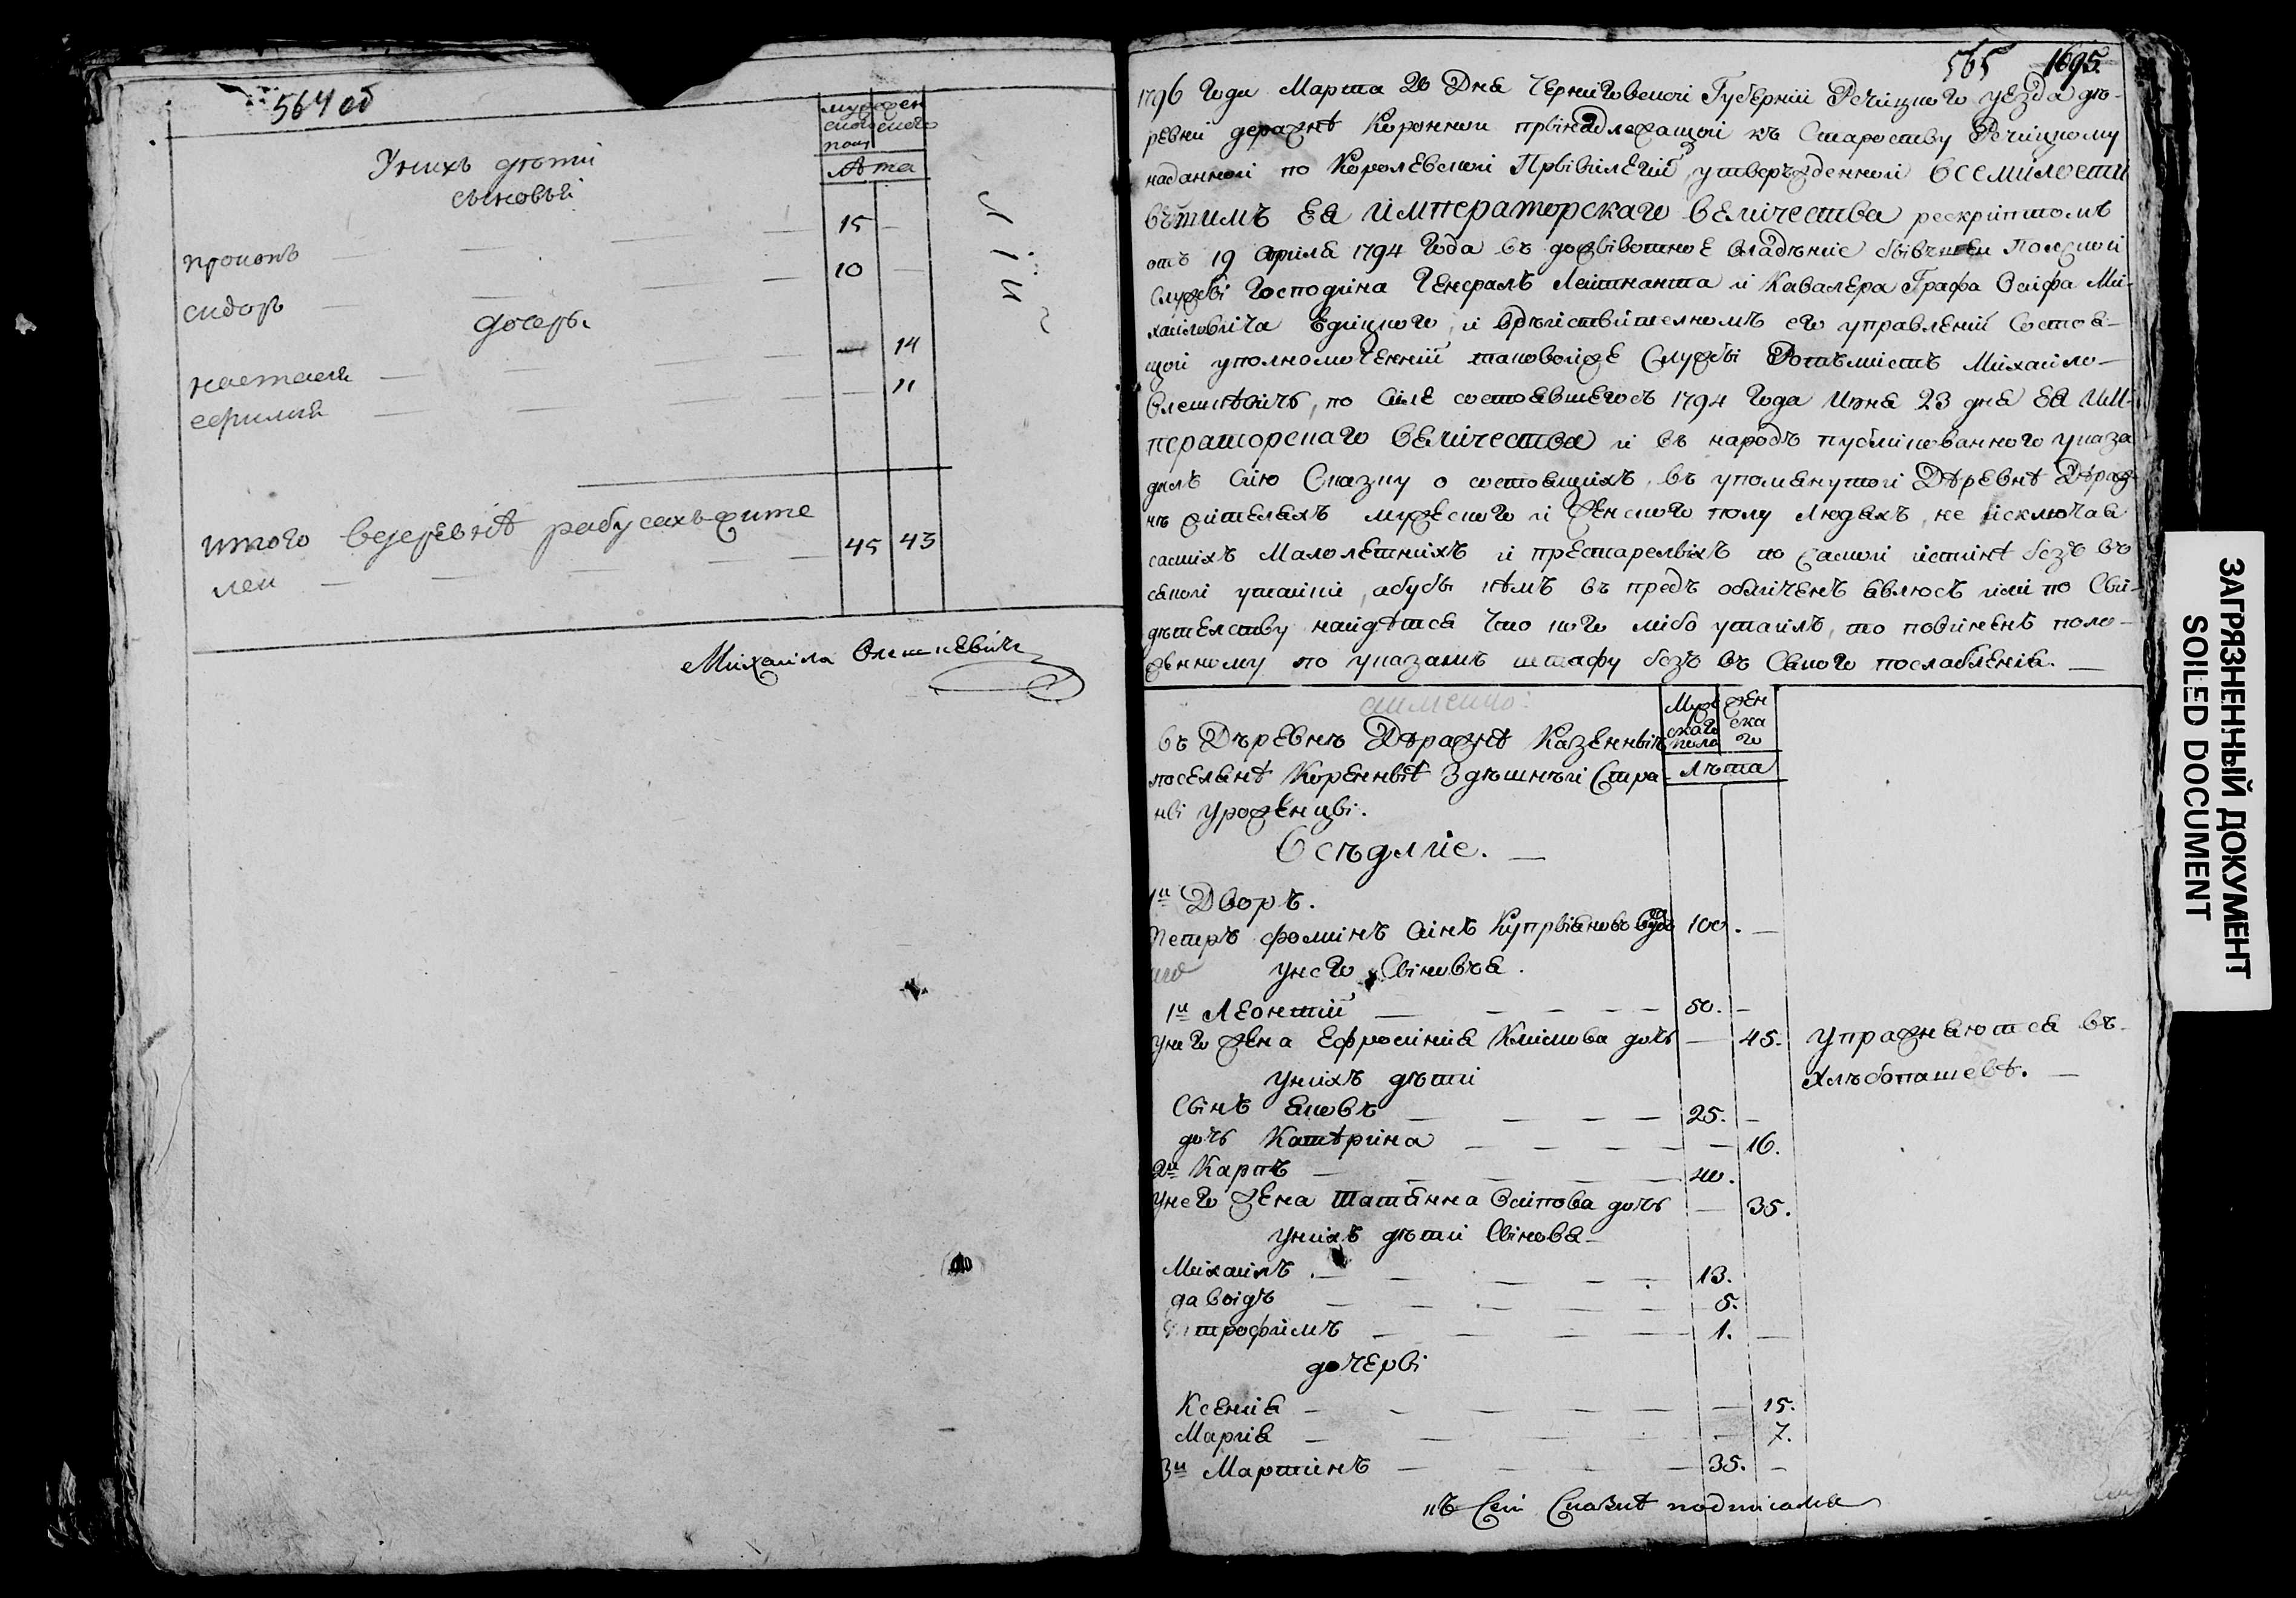 564 об
мужескаго пола
женскаго
лѣта
Унихъ дѣти
сыновьи
прокопъ 15
сидоръ 10
дочеры
настасия 14
ефимия 11
итого вдеревнѣ рабусахъ жите
лей 45 43
Михайла Олешкевичъ
565 1695
1796 Года Марта 20 Дна Черниговской Губернии Речицкого уезда де-
ревни деражнѣ Коронной принадлежащой къ Староству Речицкому
наданной по Королевской Привилегии, утвержденной Всемилости
вѣтимъ Ея императорскаго величества рескриптомъ
отъ 19 априля 1794 Года въ доживотное владѣние бывшеи Полской
Службы Господина Генералъ Лейтнанта и Кавалера Графа Осифа Ми-
хаиловича , и вдѣйствителномъ его управлении Состоя-
щой уполномоченний таковойже Службы Ротъмистъ Михайло
Олешкѣвичъ, по силе состоявшегосъ 1794 Года Июня 23 дня Ея ИМ-
ператорскаго величества и въ народъ публикованного указа
далъ сию Сказку о состоящихъ въ упомянутой Дѣревнѣ Дѣраж-
нѣ жителяхъ мужеского и женского полу людяхъ, не исключая
самихъ Малолетнихъ и престарелыхъ по самой истинѣ безъ въ
сякой утайки, абуди кѣмъ въ предъ обличенъ явлюсъ или по Сви-
дѣтелству найдѣтся что кого либо утаилъ, то повиненъ поло-
женному по указамъ штрафу безъ въ Сякого послабления.
аименно:
Мужскаго пола
женскаго
Лѣта
въ Дѣревнѣ Дѣражнѣ Казенныи
поселянѣ Коренныѣ Здѣшнѣи Стра-
ны уроженцы.
Осѣдлие.
1й Дворъ.
Петръ фоминъ Синъ Куприяновъ 100.
унего Сыновъя.
1й Леонтий 50.
унего жена Ефросиния Климова дочь 45.
Упражняются въ
Хлѣбопашевѣ.
унихъ дѣти
Сынъ Яковъ 25.
дочь Катѣрина 16.
2й Карпъ 40.
унего жена Татянна Осипова дочь 35.
унихъ дѣти Сынова
Михаилъ 13.
давыдъ 5.
трофимъ 1.
дочеры
Ксения 15.
Мария 7.
3й Мартинъ 35.
къ Сей Сказкѣ подписалъ
ЗАГРЯЗНЕННЫЙ ДОКУМЕНТ
SOILED DOCUMENT